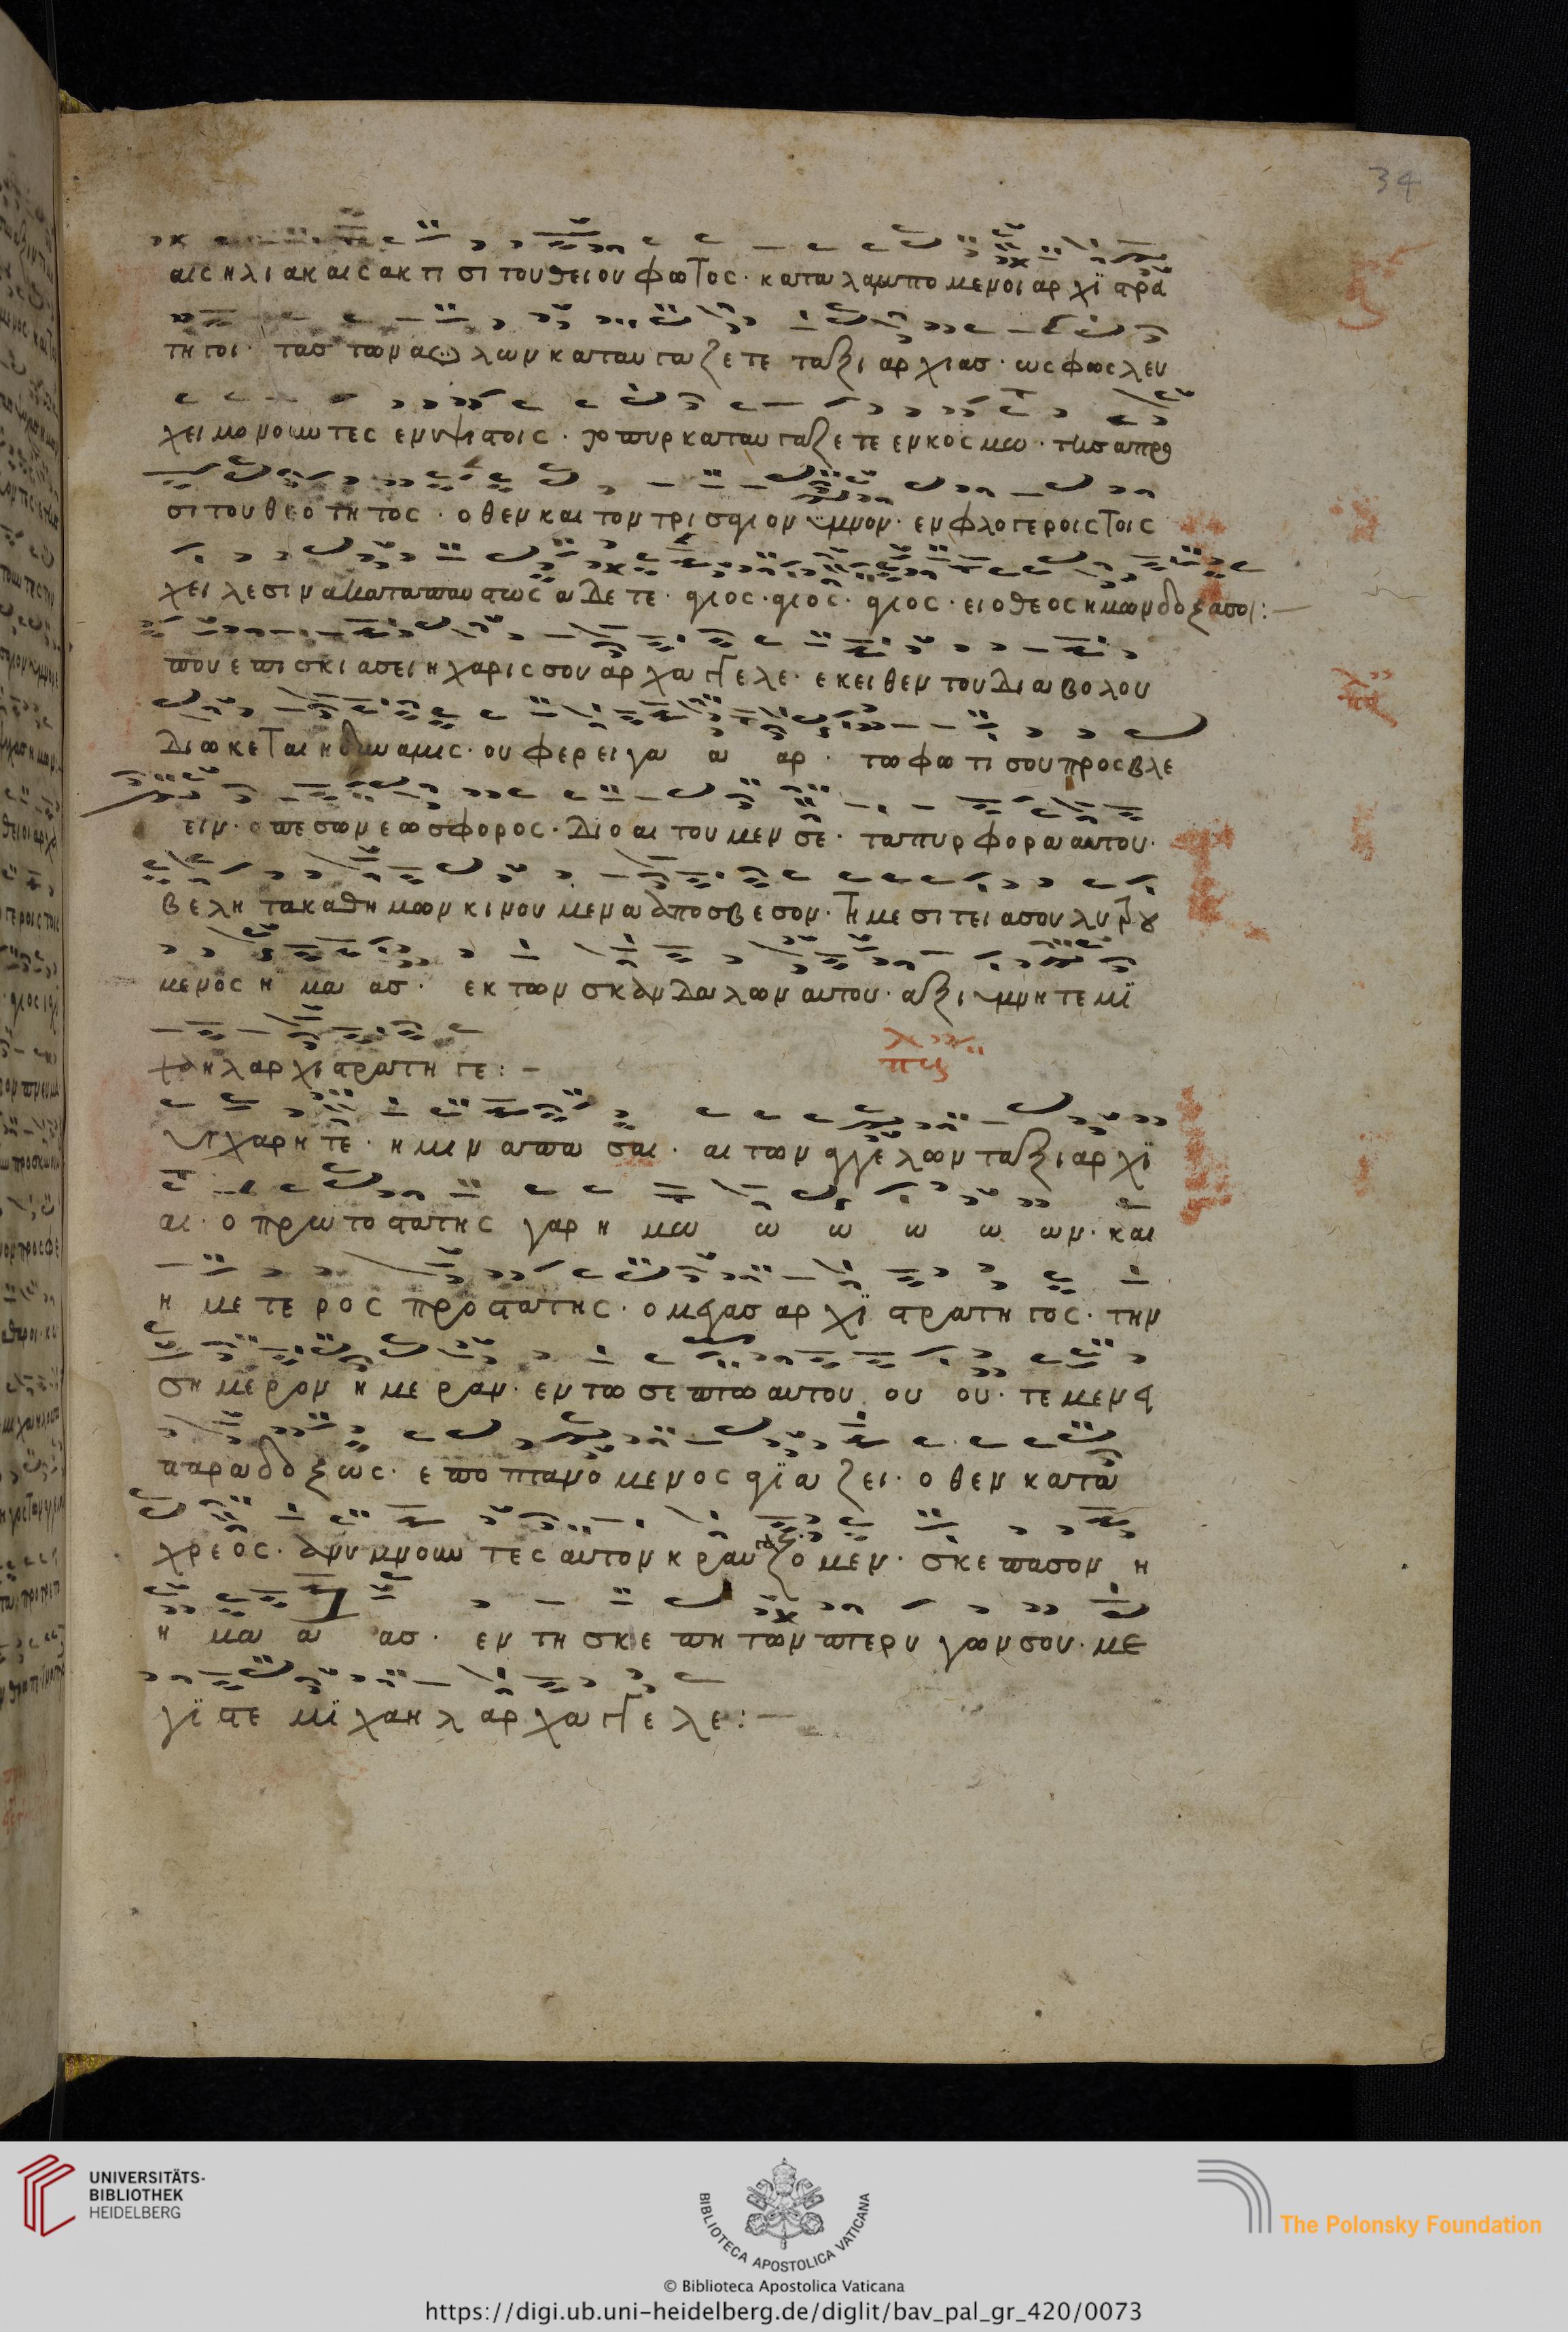 34
αις ηλιακαις ακτισι του θειου φωτος · καταλαμποмενοι αρχϊστρα
τητοι · τας των αϋλων καταυγαζετε ταξιαρχιας · ως φως λευ
χειμονουντες εν υψιστοις · το πυρ καταυγαζετε εν κοσμω · της απρο
σιτου θεοτητος · οθεν και τον τρισαγιον υμνον · εν φλογεροις τοις
χειλεσιν ακαταπαυστως αδετε · αγιος · αγιος · αγιος · ει ο θεος ημων δοξα σοι : —
που επισκιασει η χαρις σου αρχαγγελε · εκειθεν του διαβολου
διωκεται η δυναμις · ου φερει γα α αρ · τω φωτι σου προσβλε
ειν · ο πεσων εωσφορος · διο αιτουμεν σε · τα πυρφορα αυτου ·
βελη τα καθ ημων κινουμενα αποσβεσον · τη μεσιτεια σου λυτρου
μενος η μα ας · εκ των σκανδαλων αυτου · αξιυμνητε μϊ
χαηλ αρχιστρατητε : —
Συγχαρητε · ημιν απασαι · αι των αγγελων ταξιαρχϊ
αι · ο πρωτοστατης γαρ η μω ω ω ω ω ων · και
ημετερος προστατης · ο μεγας αρχϊστρατητος · την
σημερον ημεραν · εν τω σεπτω αυτου ου ου · τεμενει
παραδοξως · εποπτανομενος αγϊαζει · οθεν κατα
χρεος · ανυμνουντες αυτον κραυγαζομεν · σκεπασον η
η μα α ας · εν τη σκεπη των πτερυγων σου · με
γϊστε μϊχαηλ αρχαγγελε : —
UNIVERSITÄTS-
BIBLIOTHEK
HEIDELBERG
BIBLIOTECA APOSTOLICA VATICANA
The Polonsky Foundation
© Biblioteca Apostolica Vaticana
https://digi.ub.uni-heidelberg.de/diglit/bav_pal_gr_420/0073